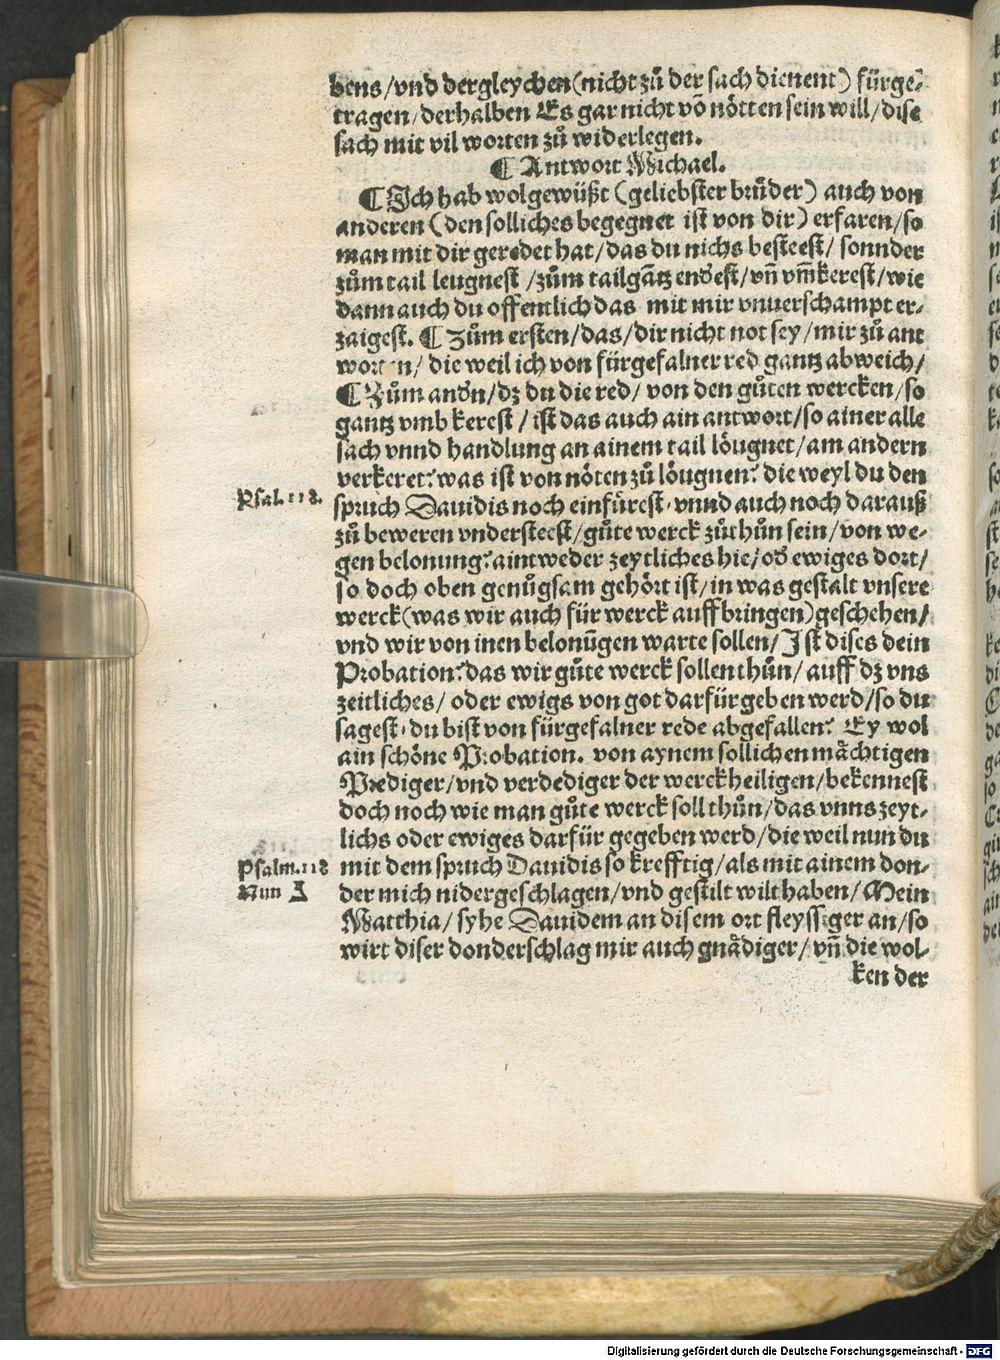 bens/vnd dergleychen(nicht zů der sach dienent) fürge-
tragen/derhalben Es gar nicht võ nötten sein will/dise
sach mit vil worten zů widerlegen.
¶ Antwort Michael.
¶ Ich hab wol gewüßt (geliebster brůder) auch von
anderen (den solliches begegnet ist von dir) erfaren/so
man mit dir geredet hat/das du nichs besteest/ sonnder
zům tail leugnest /zům tail gãtz endest/vñ vm̃kerest/wie
dann auch du offentlich das mit mir vnuerschampt er-
zaigest. ¶ Zům ersten/das/dir nicht not sey/mir zů ant
wor n/ die weil ich von fürgefalner red gantz abweich/
¶ Zům andn/dz du die red/ von den gůten wercken/so
gantz vmb kerest / ist das auch ain antwort/so ainer alle
sach vnnd handlung an ainem tail löugnet/am andern
verkeret? was ist von nöten zů löugnen? die weyl du den
Psal. 118.
spruch Dauidis noch einfürest, vnnd auch noch darauß
zů beweren vndersteest/gůte werck zůthůn sein/von we-
gen belonung? aintweder zeytliches hie/od ewiges dort/
so doch oben genůgsam gehört ist/in was gestalt vnsere
werck(was wir auch für werck auffbringen)geschehen/
vnd wir von inen belonũgen warte sollen/Ist dises dein
Probation? das wir gůte werck sollen thůn/ auff dz vns
zeitliches/ oder ewigs von got darfür geben werd/so du
sagest, du bist von fürgefalner rede abgefallen? Ey wol
ain schöne Probation. von aynem sollichen mächtigen
Prediger/vnd verdediger der werckheiligen/bekennest
doch noch wie man gůte werck soll thůn/das vnns zeyt-
lichs oder ewiges darfür gegeben werd/die weil nun du
Psalm. 118
Nun A
mit dem spruch Dauidis so krefftig/als mit ainem don-
der mich nidergeschlagen/vnd gestilt wilt haben/Mein
Matthia/ syhe Dauidem an disem ort fleyssiger an/so
wirt diser donderschlag mir auch gnädiger/ vñ die wol-
ken der
Digitalisierung gefördert durch die Deutsche Forschungsgemeinschaft - DFG